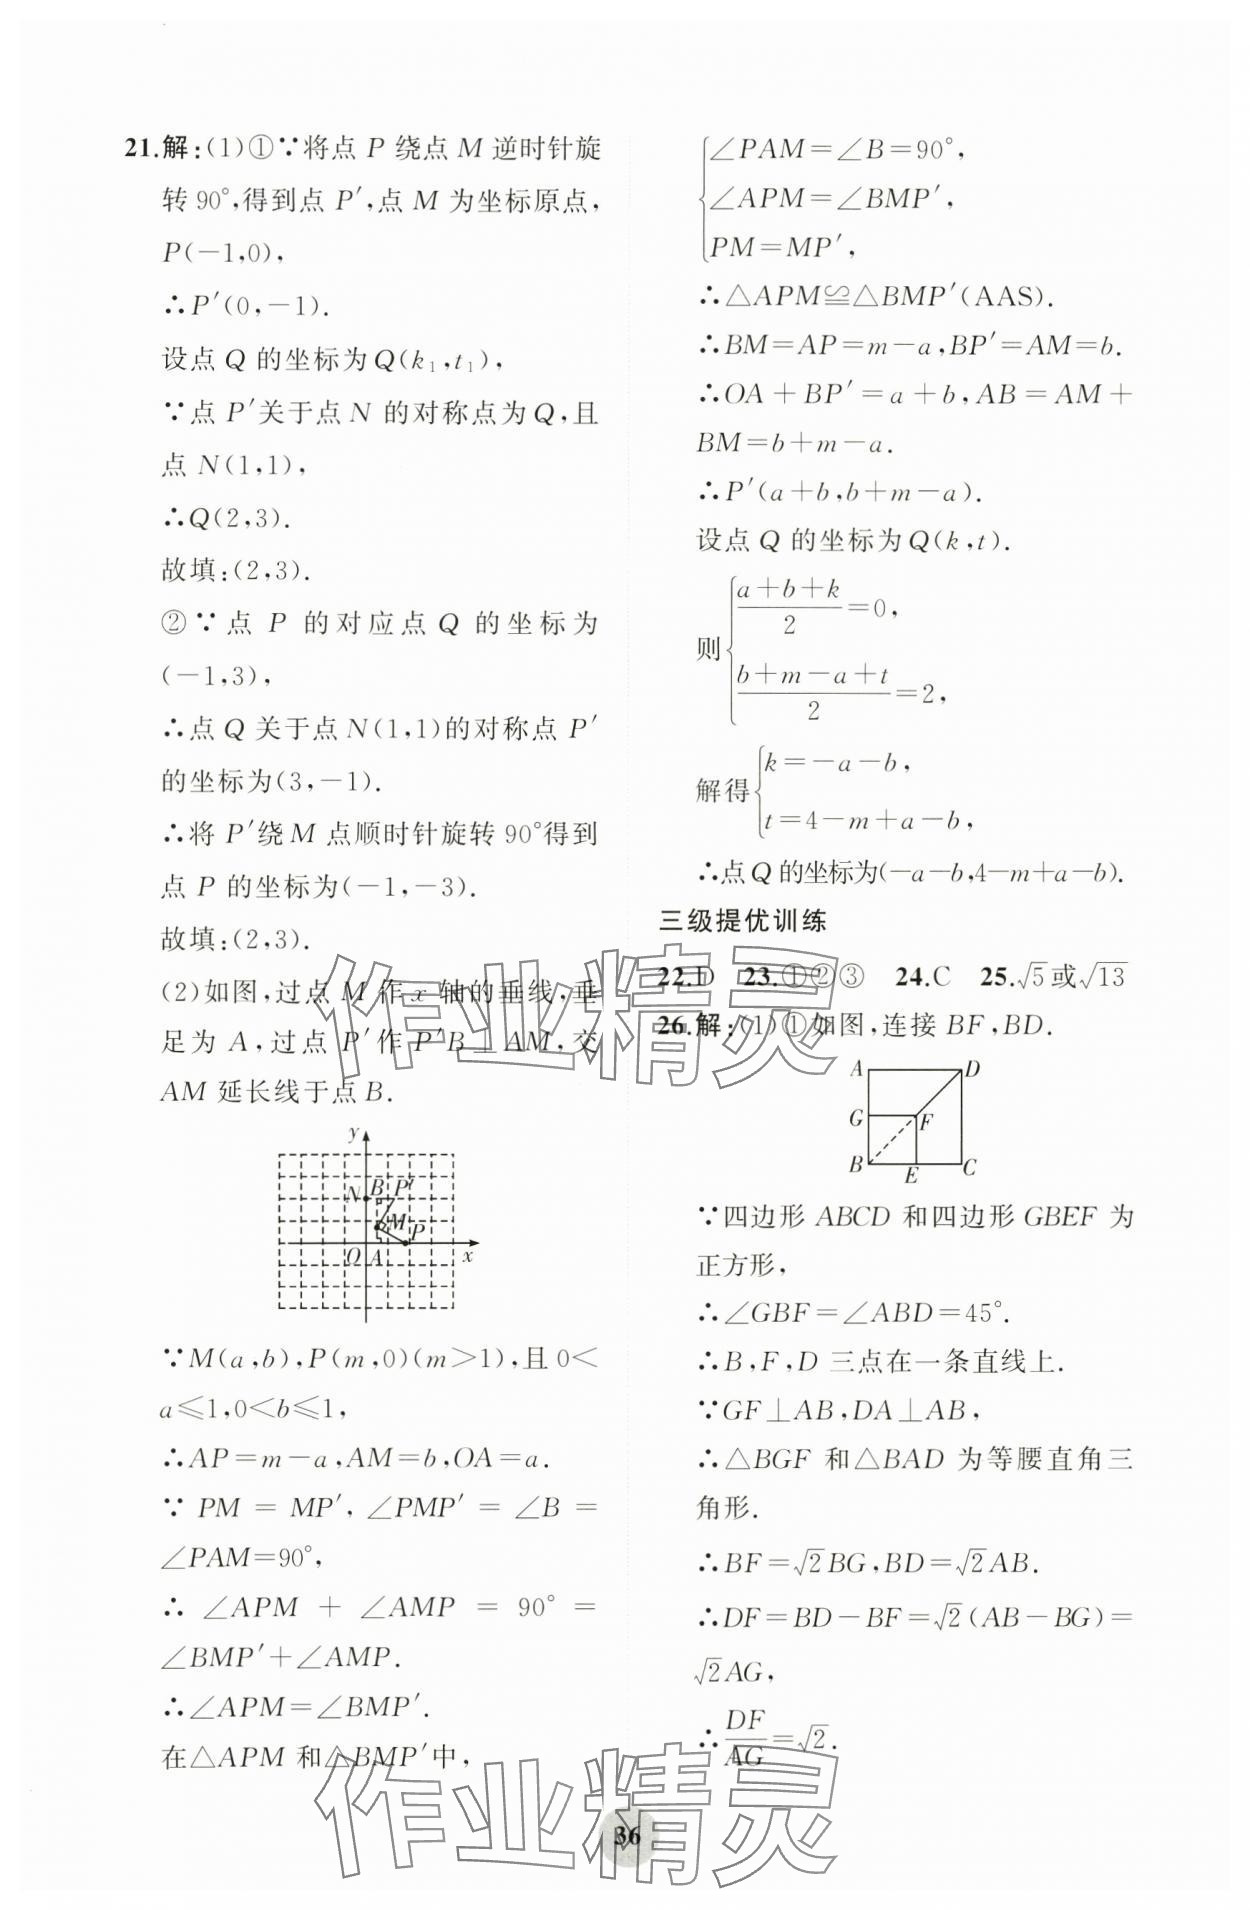 21.解:(1)①∵将点 P 绕点 M 逆时针旋
转 90°,得到点 P′,点 M 为坐标原点,
P(-1,0),
∴P′(0,-1).
设点 Q 的坐标为 Q(k₁,t₁),
∵点 P′关于点 N 的对称点为 Q,且
点 N(1,1),
∴Q(2,3).
故填:(2,3).
②∵点 P 的对应点 Q 的坐标为
(-1,3),
∴点 Q 关于点 N(1,1)的对称点 P′
的坐标为(3,-1).
∴将 P′绕 M 点顺时针旋转 90°得到
点 P 的坐标为(-1,-3).
故填:(2,3).
(2)如图,过点 M 作 x 轴的垂线,垂
足为 A,过点 P′作 P′B⊥AM,交
AM 延长线于点 B.
y
N B P′
M P
O A x
∵M(a,b),P(m,0)(m>1),且 0<
a≤1,0<b≤1,
∴AP=m-a,AM=b,OA=a.
∵ PM = MP′, ∠PMP′ = ∠B =
∠PAM=90°,
∴ ∠APM + ∠AMP = 90° =
∠BMP′+∠AMP.
∴∠APM=∠BMP′.
在△APM 和△BMP′中,
∠PAM=∠B=90°,
∠APM=∠BMP′,
PM=MP′,
∴△APM≌△BMP′(AAS).
∴BM=AP=m-a,BP′=AM=b.
∴OA+BP′=a+b,AB=AM+
BM=b+m-a.
∴P′(a+b,b+m-a).
设点 Q 的坐标为 Q(k,t).
则{(a+b+k)/2=0,
(b+m-a+t)/2=2,
解得{k=-a-b,
t=4-m+a-b,
∴点 Q 的坐标为(-a-b,4-m+a-b).
三级提优训练
22.D 23.①②③ 24.C 25.√5或√13
26.解:(1)①如图,连接 BF,BD.
A D
G F
B E C
∵四边形 ABCD 和四边形 GBEF 为
正方形,
∴∠GBF=∠ABD=45°.
∴B,F,D 三点在一条直线上.
∵GF⊥AB,DA⊥AB,
∴△BGF 和△BAD 为等腰直角三
角形.
∴BF=√2BG,BD=√2AB.
∴DF=BD-BF=√2(AB-BG)=
√2AG,
∴DF/AG=√2.
作业精灵
作业精灵
36